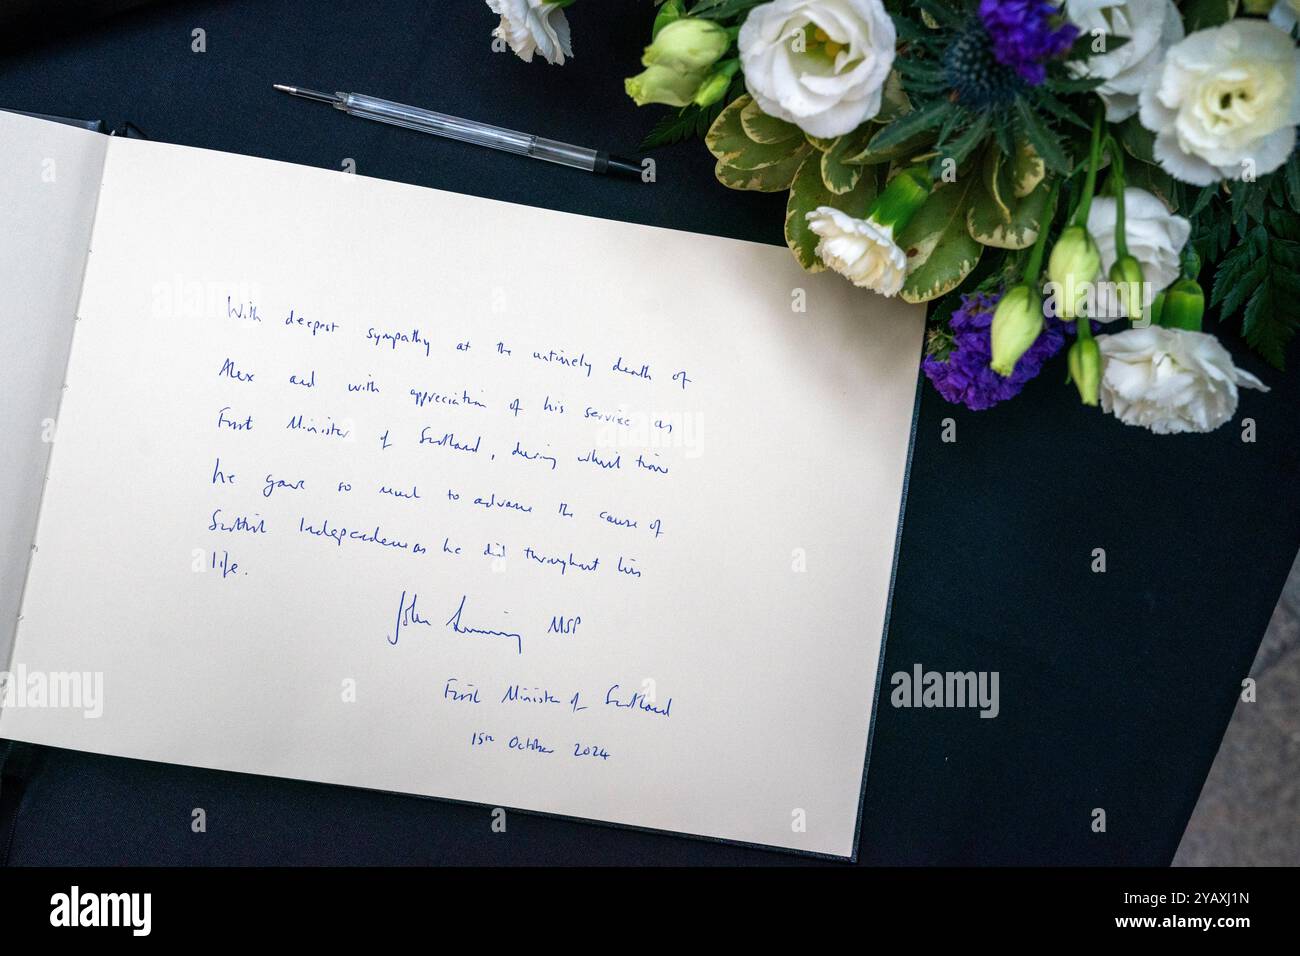 With deepest sympathy at the untimely death of
Alex and with appreciation of his service as
First Minister of Scotland, during which time
he gave so much to advance the cause of
Scottish Independence as he did throughout his
life.
John Swinney MSP
First Minister of Scotland
15th October 2024
alamy
alamy
alamy
alamy
a
a
a
a
a
a
alamy
Image ID: 2YAXJ1N
www.alamy.com